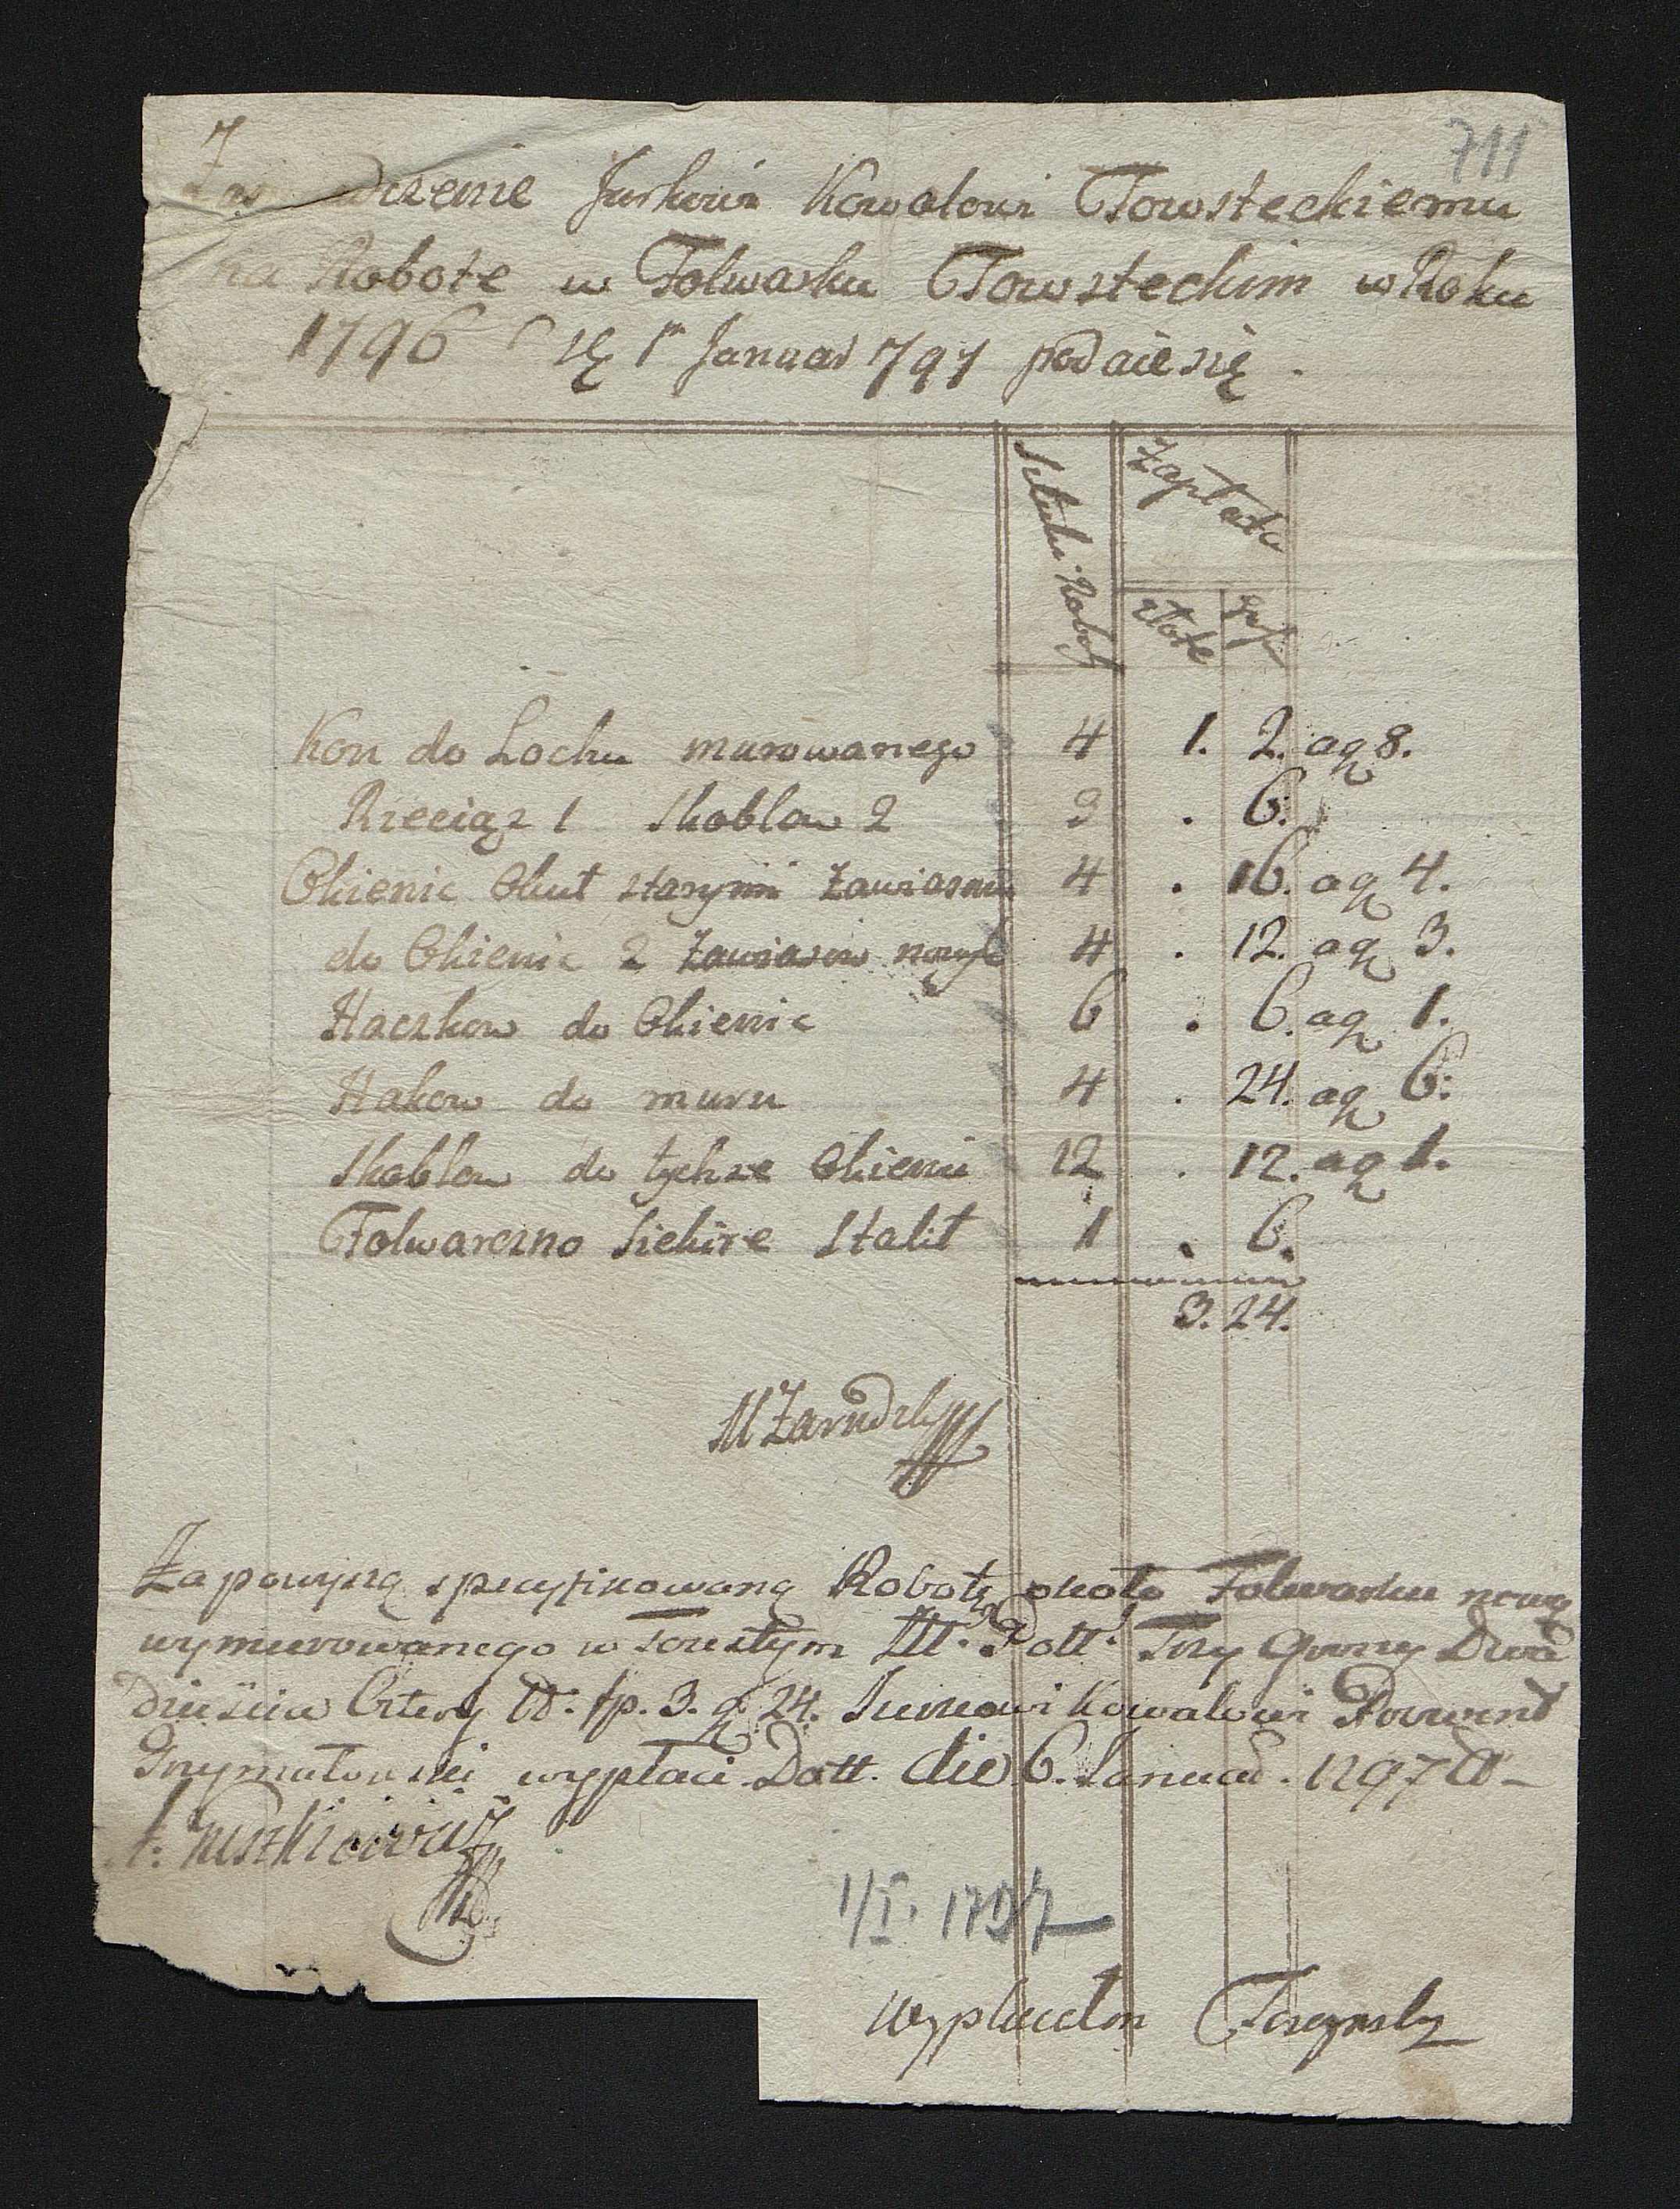 711
drzenie Jurkowi Kowalowi Towsteckiemu
na Robote w Folwarku Towsteckim w Roku
1796 1ę Januar 797 podaie się.
Sztuki Roboty Zapłata
złote grosze
Kon do Lochu murowanego 4 1. 2. aq 8.
Rzeciąz 1 Skoblow 2 3 . 6.
Okienic Okut starymi zawiasami 4 . 16. aq 4.
do Okienic 2 zawiasow nowych 4 . 12. aq 3.
Haczkow do Okienic 6 . 6. aq 1.
Hakow do muru 4 . 24. aq 6:
Skoblow do tychze Okienic 12 . 12. aq 1.
Folwarczno Siekire Stalit 1 . 6.
3. 24.
M Zarudzky
Za powyszą specyfikowaną Robotę około Folwarku nowo
wymurowanego w Towstym Trzy Groszy Dwa
dziescia Cztery fp. 3. g 24. Kowalowi Prowent
wypłaci. Datt. die 6. Januar. 1797
1/I. 1797
wyplacilem